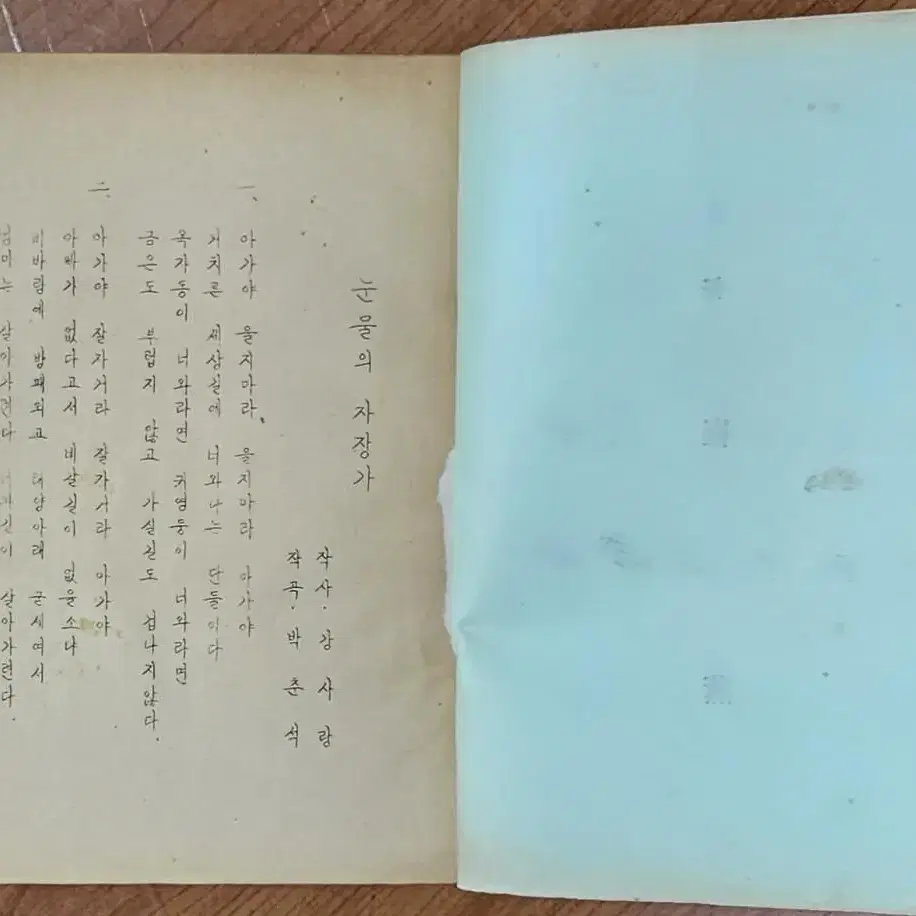 눈물의 자장가
작사·강사랑
작곡·박춘석
一、
아가야 울지마라 울지마라 아가야
거치른 세상길에 너와나는 단둘이다
옥가동이 너와라면 귀영둥이 너와라면
금은도 부럽지 않고 가실길도 겁나지않다.
二、
아가야 잘자거라 잘자거라 아가야
아빠가 없다고서 네살길이 없을소냐
비바람에 방패되고 태양아래 굳세여서
살아가련다 살아가련다.